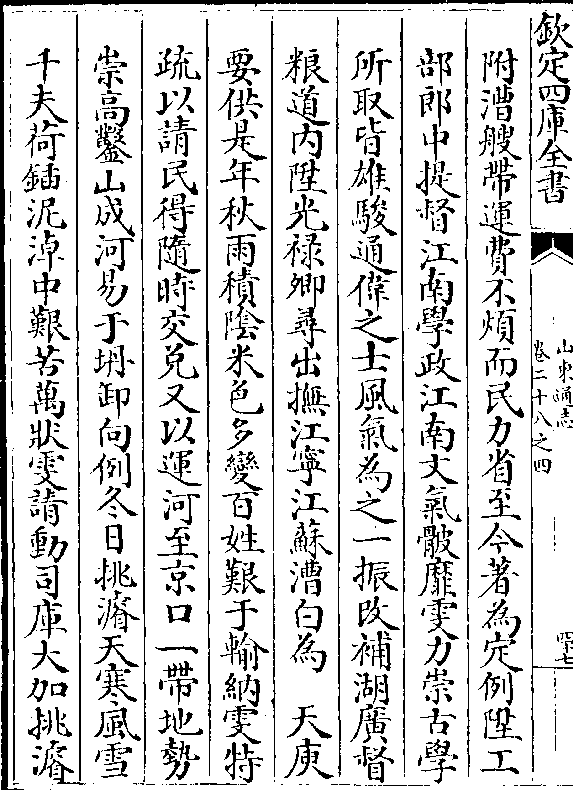 欽定四庫全書
山東通志
卷二十八之四
附漕艘帶運費不煩而民力省至今著為定例陞工
部郎中提督江南學政江南文氣骫靡雯力崇古學
所取皆雄駿通偉之士風氣為之一振改補湖廣督
粮道內陞光禄卿尋出撫江寧江蘇漕白為　天庾
要供是年秋雨積陰米色多變百姓艱于輸納雯特
疏以請民得隨時交兌又以運河至京口一帶地勢
崇高鑿山成河易于坍卸向例冬日挑濬天寒風雪
千夫荷鍤泥淖中艱苦萬狀雯請動司庫大加挑濬